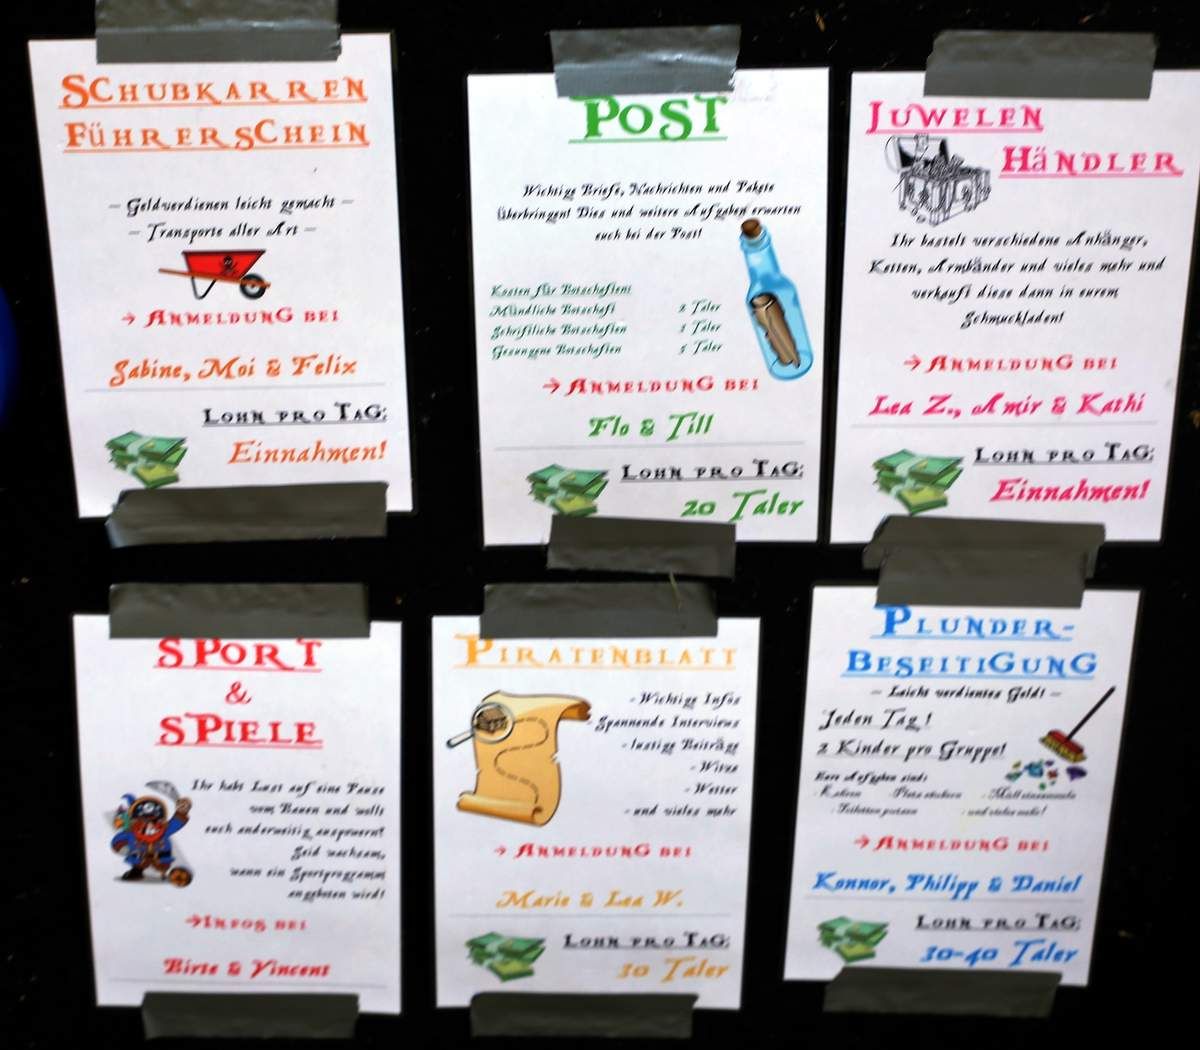 SCHUBKARREN
FÜHRERSCHEIN
– Geldverdienen leicht gemacht –
– Transporte aller Art –
→ ANMELDUNG BEI
Sabine, Moi & Felix
LOHN PRO TAG:
Einnahmen!
POST
Wichtige Briefe, Nachrichten und Pakete
überbringen! Dies und weitere Aufgaben erwarten
euch bei der Post!
Kosten für Botschaften:
Mündliche Botschaft 2 Taler
Schriftliche Botschaften Taler
Gesungene Botschaften 5 Taler
→ ANMELDUNG BEI
Flo & Till
LOHN PRO TAG:
20 Taler
JUWELEN
HÄNDLER
Ihr bastelt verschiedene Anhänger,
Ketten, Armbänder und vieles mehr und
verkauft diese dann in eurem
Schmuckladen!
→ ANMELDUNG BEI
Lea Z., Amir & Kathi
LOHN PRO TAG:
Einnahmen!
SPORT
&
SPIELE
Ihr habt Lust auf eine Pause
vom Bauen und wollt
euch anderweitig auspowern?
Seid wachsam,
wann ein Sportprogramm
angeboten wird!
→INFOS BEI
Birte & Vincent
PIRATENBLATT
- Wichtige Infos
Spannende Interviews
- lustige Beiträge
- Witze
- Wetter
- und vieles mehr
→ ANMELDUNG BEI
Marie & Lea W.
LOHN PRO TAG:
30 Taler
PLUNDER-
BESEITIGUNG
– Leicht verdientes Geld! –
Jeden Tag!
2 Kinder pro Gruppe!
Eure Aufgaben sind:
- Kehren - Müll einsammeln
- Toiletten putzen - und vieles mehr!
→ ANMELDUNG BEI
Konnor, Philipp & Daniel
LOHN PRO TAG:
30-40 Taler